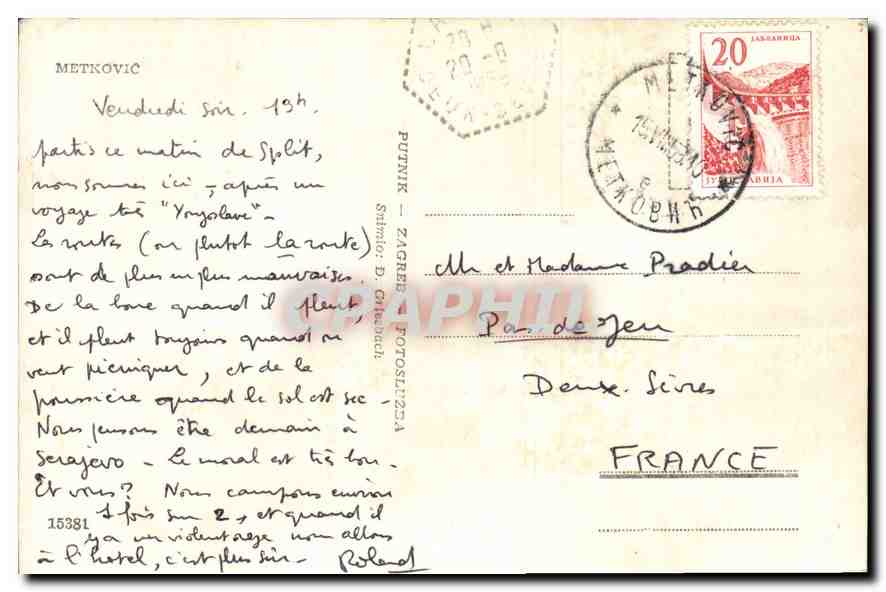 METKOVIĆ
Vendredi soir. 19h
partis ce matin de Split,
nous sommes ici - après un
voyage très "Yougoslave" -
Les routes (ou plutôt la route)
sont de plus en plus mauvaises.
De la boue quand il pleut,
et il pleut toujours quand on
veut picniquer, et de la
poussière quand le sol est sec -
Nous pensons être demain à
Serajevo - Le moral est très bon -
Et vous? Nous campons environ
1 fois sur 2, et quand il
y a un violent orage nous allons
à l'hotel, c'est plus sûr - Roland
15381
PUTNIK — ZAGREB — FOTOSLUZBA
Snimio: D. Griesbach
CPAPHIL
20
ЈАБЛАНИЦА
ЈУГОСЛАВИЈА
METKOVIĆ
МЕТКОВИЋ
Mr et Madame Pradier
Pas-de-Jeu
Deux-Sèvres
FRANCE